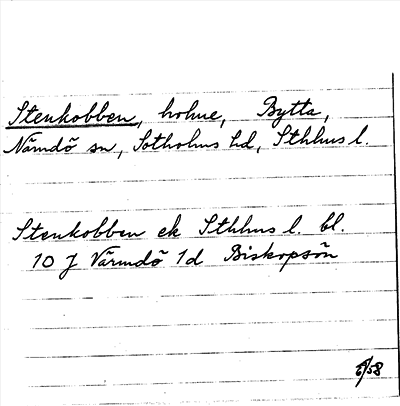 Stenkobben, holme, Bytta,
Nämdö sn, Sotholms hd, Sthlms l.
Stenkobben ek Sthlms l. bl.
10 J Värmdö 1d Biskopsön
/58